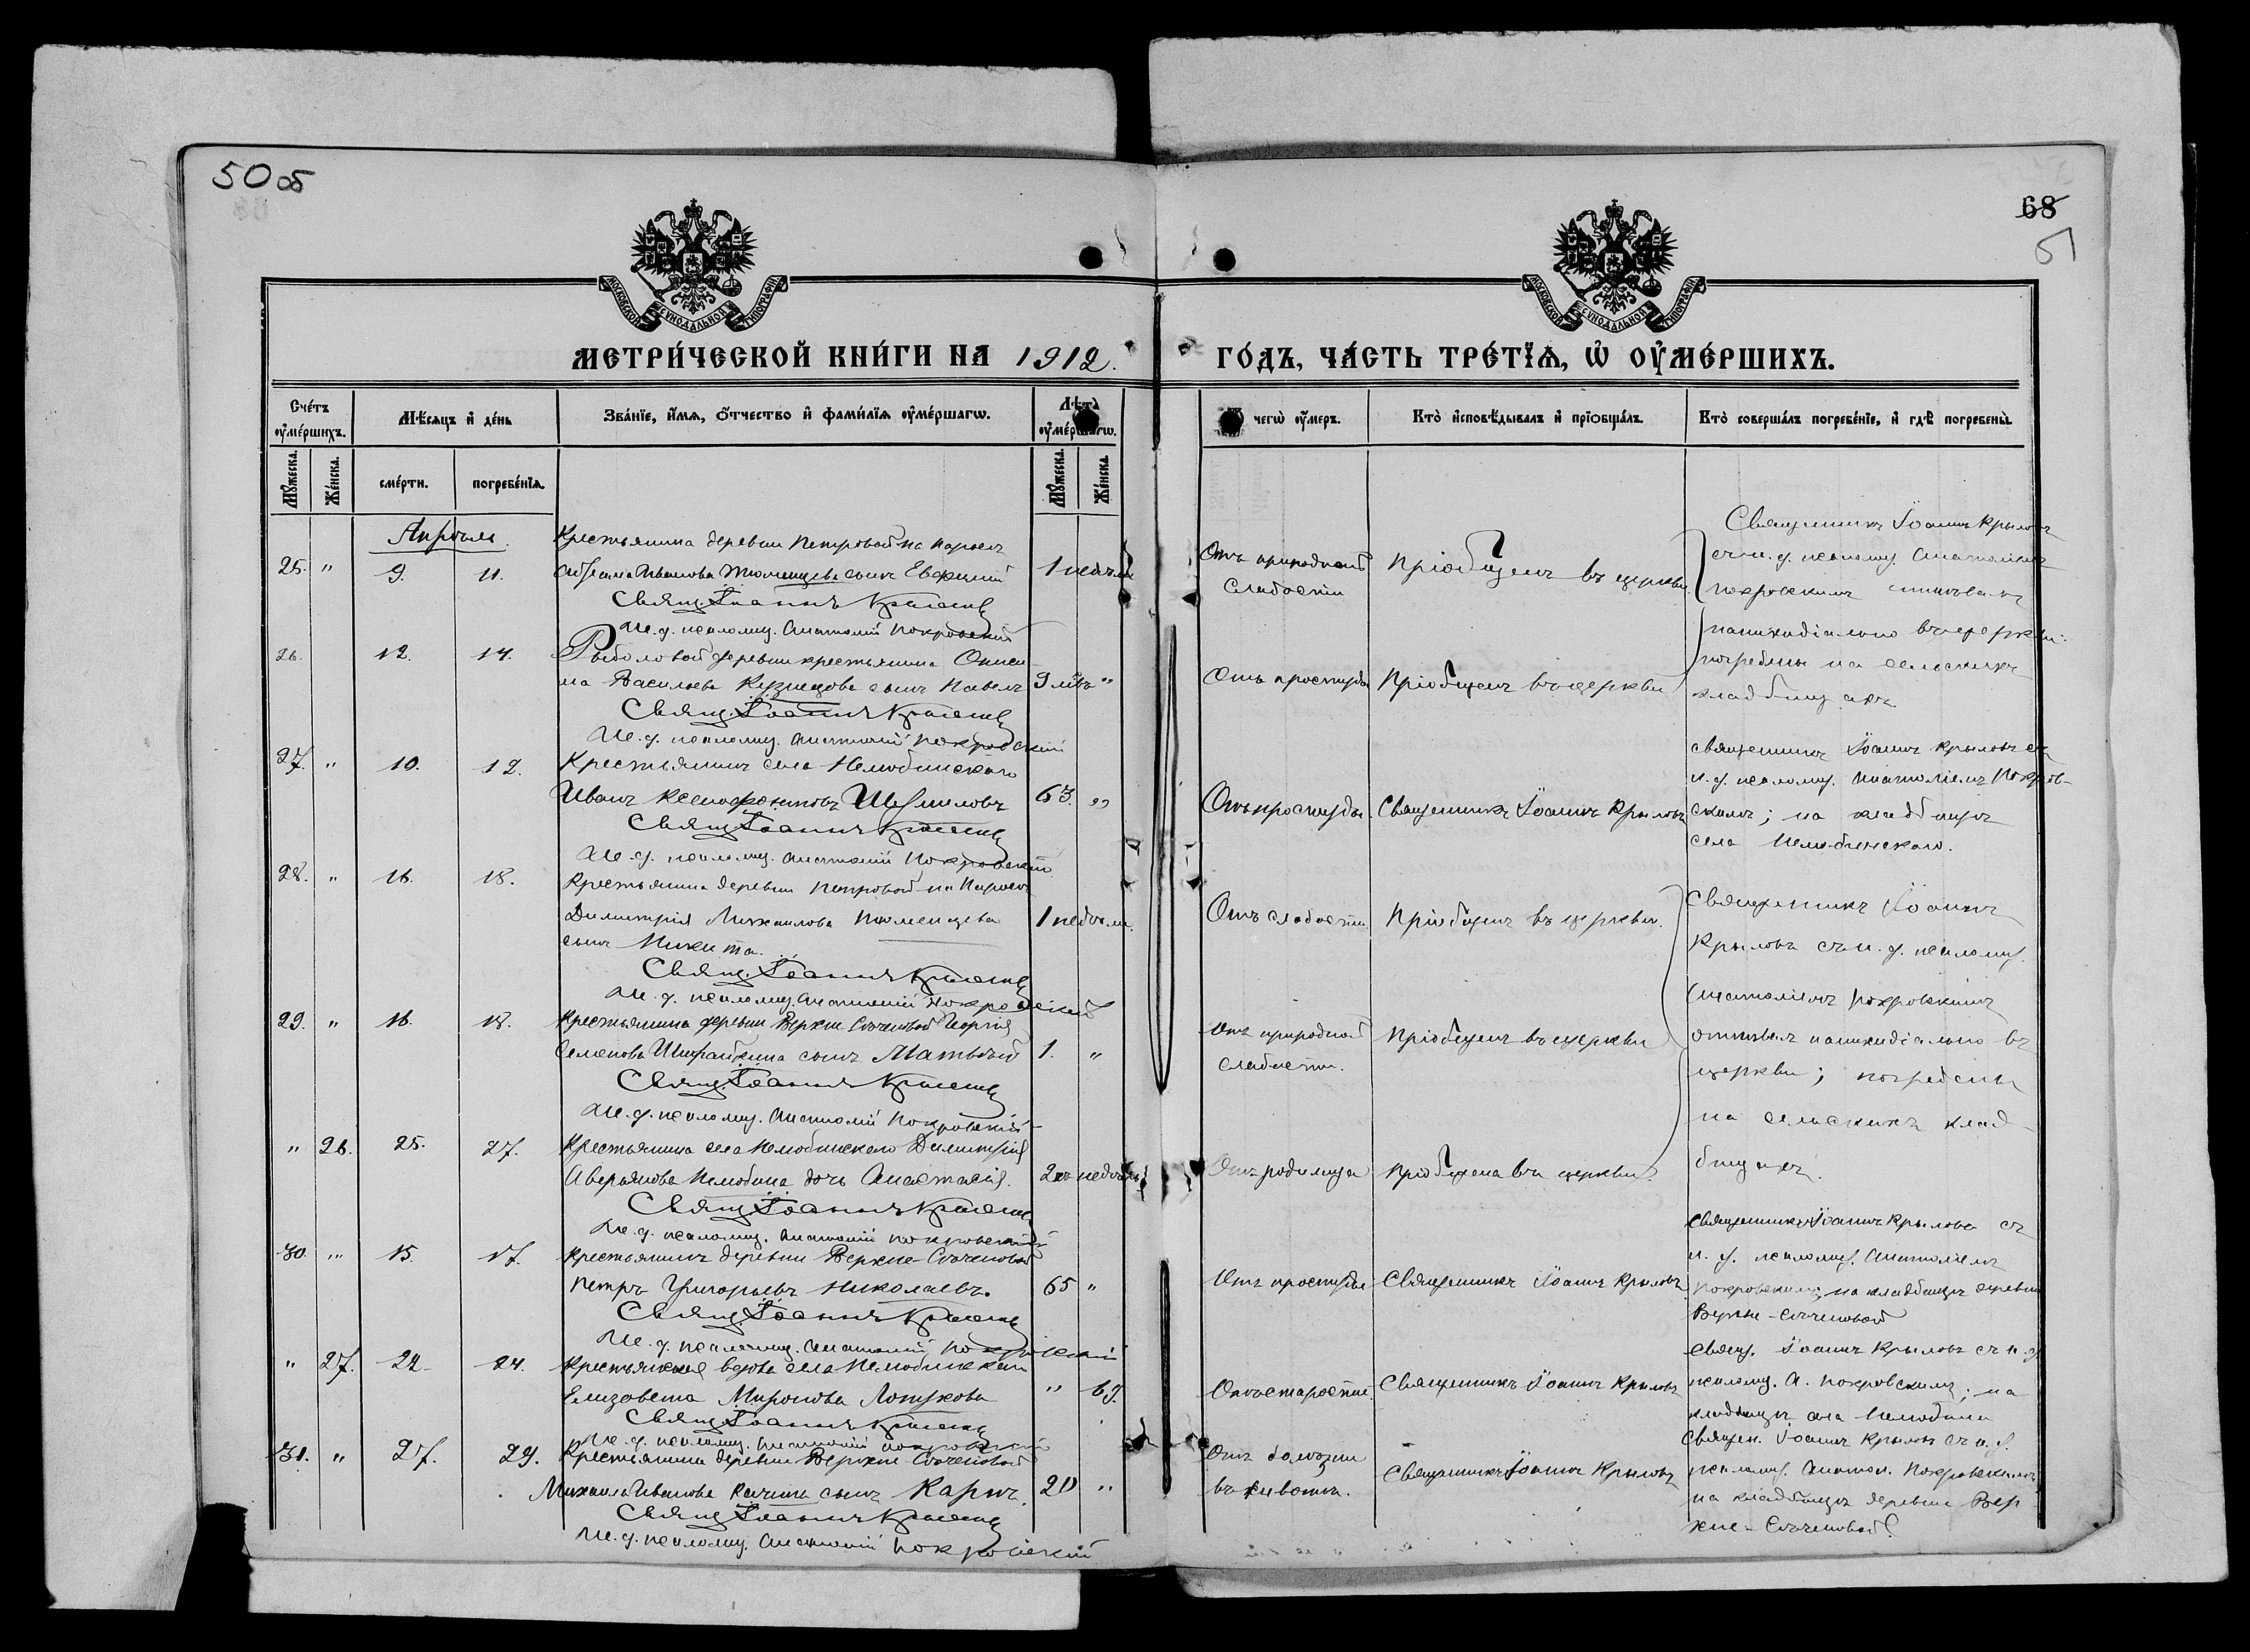 50 об
68
51
МОСКОВСКОЙ СѴНОДАЛЬНОЙ ТИПОГРАФІИ
МОСКОВСКОЙ СѴНОДАЛЬНОЙ ТИПОГРАФІИ
МЕТРИ́ЧЕСКОЙ КНИ́ГИ НА 1912.
ГО́ДЪ, ЧА́СТЬ ТРЕ́ТЇѦ, Ѡ҆ ОУ҆МЕ́РШИХЪ.
Сче́тъ оу҆ме́ршихъ.
Мѣ́сяцъ и҆ де́нь
Зва́нїе, и҆́мѧ, ѻ҆́тчество и҆ фами́лїѧ оу҆ме́ршагѡ.
Лѣ̑та оу҆ме́ршагѡ.
чегѡ̀ оу҆́меръ.
Кто̀ и҆сповѣ́дывалъ и҆ прїѡбща́лъ.
Кто̀ соверша́лъ погребе́нїе, и҆ гдѣ̀ погребены̀.
Мꙋ́жеска.
Же́нска.
сме́рти.
погребе́нїѧ.
Мꙋ́жеска.
Же́нска.
Апрѣль.
Крестьянина деревни Петровой на Паросѣ
25. " 9. 11. Абрама Иванова Тюменцева сынъ Евфимій 1 недѣли
Свящ. Іоаннъ Крыловъ
И. д. псаломщ. Анатолій Покровскій
Отъ природной
слабости
Пріобщенъ въ церкви.
Священникъ Іоаннъ Крыловъ
съ и. д. псаломщ. Анатоліемъ
Покровскимъ
панихидіально въ церкви:
погребены на сельскихъ
кладбищахъ
26. 12. 14. Рыболовой деревни крестьянина
Васильева Кузнецова сынъ Павелъ 9 лѣтъ "
Свящ. Іоаннъ Крыловъ
И. д. псаломщ. Анатолій Покровскій
Отъ простуды
Пріобщенъ въ церкви
27. " 10. 12. Крестьянинъ села Нелюбинскаго
Иванъ Ксенофонтовъ 63. "
Свящ. Іоаннъ Крыловъ
И. д. псаломщ. Анатолій Покровскій
Отъ простуды.
Священникъ Іоаннъ Крыловъ
Священникъ Іоаннъ Крыловъ съ
и. д. псаломщ. Анатоліемъ Покров-
скимъ; на кладбищѣ
села Нелюбинскаго.
28. " 16. 18. Крестьянина деревни Петровой на Паросѣ
Димитрія Михаилова Тюменцева 1 недѣли.
сынъ Никита.
Свящ. Іоаннъ Крыловъ
И. д. псаломщ. Анатолій Покровскій
Отъ слабости.
Пріобщенъ въ церкви.
Священникъ Іоаннъ
Крыловъ съ и. д. псаломщ.
Анатоліемъ Покровскимъ
отпѣвалъ панихидіально въ
церкви; погребены
на сельскихъ клад-
бищахъ.
29. " 16. 18. Крестьянина деревни Верхне-Сѣченовой Георгія
Семенова сынъ Матвѣй 1. "
Свящ. Іоаннъ Крыловъ
И. д. псаломщ. Анатолій Покровскій
Отъ природной
слабости.
Пріобщенъ въ церкви
" 26. 25. 27. Крестьянина села Нелюбинскаго Димитрія
Аверьянова Нелюбина дочь Анастасія. 2хъ недѣль
Свящ. Іоаннъ Крыловъ
И. д. псаломщ. Анатолій Покровскій
Отъ родимца
Пріобщена въ церкви.
30. " 15. 17. Крестьянинъ деревни Верхне-Сѣченовой
Петръ Григорьевъ Николаевъ. 65 "
Свящ. Іоаннъ Крыловъ
И. д. псаломщ. Анатолій Покровскій
Отъ простуды
Священникъ Іоаннъ Крыловъ
Священникъ Іоаннъ Крыловъ съ
и. д. псаломщ. Анатоліемъ
Покровскимъ, на кладбищѣ деревни
Верхне-Сѣченовой
" 27. 22. 24. Крестьянская вдова села Нелюбинскаго
Елизавета Миронова " 69.
Свящ. Іоаннъ Крыловъ
И. д. псаломщ. Анатолій Покровскій
Отъ старости
Священникъ Іоаннъ Крыловъ
Свящ. Іоаннъ Крыловъ съ и. д.
псаломщ. А. Покровскимъ; на
кладбищѣ села Нелюбина
31. " 27. 29. Крестьянина деревни Верхне-Сѣченовой
Михаила Иванова сынъ Карпъ. 20 "
Свящ. Іоаннъ Крыловъ
И. д. псаломщ. Анатолій Покровскій
Отъ болѣзни
въ животѣ.
Священникъ Іоаннъ Крыловъ
Священ. Іоаннъ Крыловъ съ и. д.
псаломщ. Анатол. Покровскимъ,
на кладбищѣ деревни Вер-
хне-Сѣченовой.